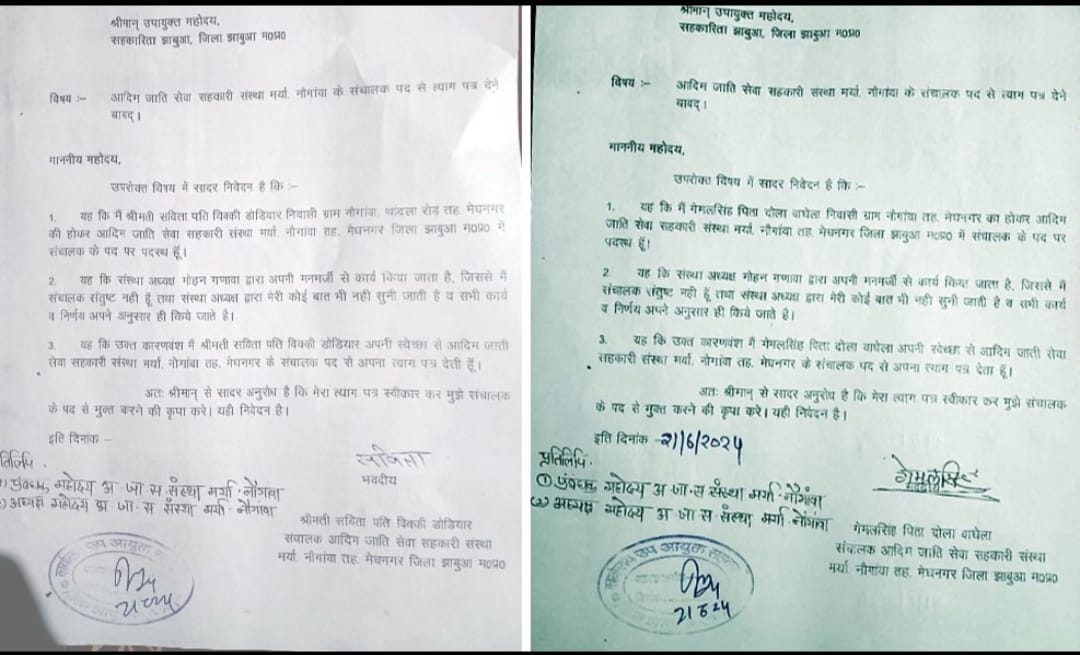 श्रीमान् उपायुक्त महोदय,
सहकारिता झाबुआ, जिला झाबुआ म0प्र0
विषय :– आदिम जाति सेवा सहकारी संस्था मर्या. नौगांवा के संचालक पद से त्याग पत्र देने
बाबद्।
माननीय महोदय,
उपरोक्त विषय में सादर निवेदन है कि :–
1. यह कि मैं श्रीमती सविता पति विक्की डोडियार निवासी ग्राम नौगांवा, थांदला रोड तह. मेघनगर
की होकर आदिम जाति सेवा सहकारी संस्था मर्या. नौगांवा तह. मेघनगर जिला झाबुआ म0प्र0 में
संचालक के पद पर पदस्थ हूँ।
2. यह कि संस्था अध्यक्ष मोहन गणावा द्वारा अपनी मनमर्जी से कार्य किया जाता है, जिससे मैं
संचालक संतुष्ट नही हूँ तथा संस्था अध्यक्ष द्वारा मेरी कोई बात भी नही सुनी जाती है व सभी कार्य
व निर्णय अपने अनुसार ही किये जाते है।
3. यह कि उक्त कारणवंश मैं श्रीमती सविता पति विक्की डोडियार अपनी स्वेच्छा से आदिम जाती
सेवा सहकारी संस्था मर्या. नौगांवा तह. मेघनगर के संचालक पद से अपना त्याग पत्र देती हूँ।
अतः श्रीमान् से सादर अनुरोध है कि मेरा त्याग पत्र स्वीकार कर मुझे संचालक
के पद से मुक्त करने की कृपा करे। यही निवेदन है।
इति दिनांक –
तिलिपि.
सविता
भवदीय
प्रबंधक महोदय अ जा स संस्था मर्या. नौगांवा
अध्यक्ष महोदय अ जा स संस्था मर्या नौगांवा
श्रीमती सविता पति विक्की डोडियार
संचालक आदिम जाति सेवा सहकारी संस्था
मर्या. नौगांवा तह. मेघनगर जिला झाबुआ म0प्र0
उप आयुक्त
श्रीमान् उपायुक्त महोदय,
सहकारिता झाबुआ, जिला झाबुआ म0प्र0
विषय :– आदिम जाति सेवा सहकारी संस्था मर्या. नौगांवा के संचालक पद से त्याग पत्र देने
बाबद्।
माननीय महोदय,
उपरोक्त विषय में सादर निवेदन है कि :–
1. यह कि मैं गेमलसिंह पिता दोला वाघेला निवासी ग्राम नौगांवा तह. मेघनगर का होकर आदिम
जाति सेवा सहकारी संस्था मर्या. नौगांवा तह. मेघनगर जिला झाबुआ म0प्र0 में संचालक के पद पर
पदस्थ हूँ।
2. यह कि संस्था अध्यक्ष मोहन गणावा द्वारा अपनी मनमर्जी से कार्य किया जाता है, जिससे मैं
संचालक संतुष्ट नही हूँ तथा संस्था अध्यक्ष द्वारा मेरी कोई बात भी नही सुनी जाती है व सभी कार्य
व निर्णय अपने अनुसार ही किये जाते है।
3. यह कि उक्त कारणवंश मैं गेमलसिंह पिता दोला वाघेला अपनी स्वेच्छा से आदिम जाती सेवा
सहकारी संस्था मर्या. नौगांवा तह. मेघनगर के संचालक पद से अपना त्याग पत्र देता हूँ।
अतः श्रीमान् से सादर अनुरोध है कि मेरा त्याग पत्र स्वीकार कर मुझे संचालक
के पद से मुक्त करने की कृपा करे। यही निवेदन है।
इति दिनांक –21/6/2024
प्रतिलिपि.
गेमलसिंह
① प्रबंधक महोदय अ.जा.स संस्था मर्या. नौगांवा
② अध्यक्ष महोदय अ जा.स. संस्था मर्या नौगांवा
गेमलसिंह पिता दोला वाघेला
संचालक आदिम जाति सेवा सहकारी संस्था
मर्या. नौगांवा तह. मेघनगर जिला झाबुआ म0प्र0
उप आयुक्त
21 6 24